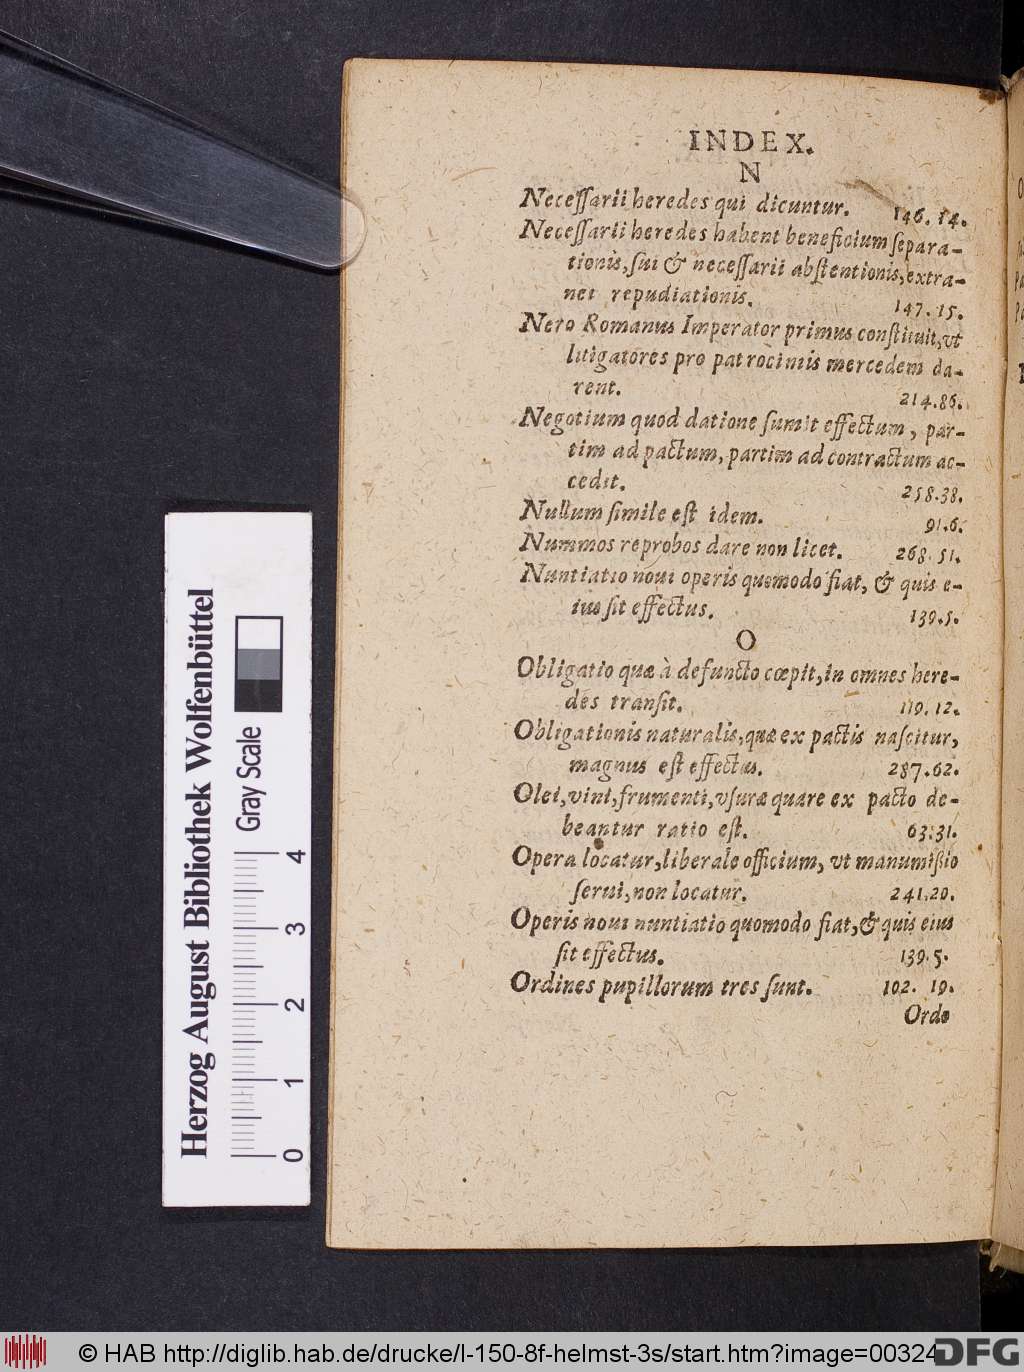 INDEX.
N
Neceſſarii heredes qui dicuntur. 146. 14.
Neceſſarii heredes habent beneficium ſepara-
tionis, ſui & neceſſarii abſtentionis, extra-
nei repudiationis. 147. 15.
Nero Romanus Imperator primus conſtituit, vt
litigatores pro patrociniis mercedem da-
rent. 214. 86.
Negotium quod datione ſumit effectum, par-
tim ad pactum, partim ad contractum ac-
cedit. 258. 38.
Nullum ſimile eſt idem. 91. 6.
Nummos reprobos dare non licet. 268. 51.
Nuntiatio noui operis quomodo fiat, & quis e-
ius ſit effectus. 139. 5.
O
Obligatio quæ à defuncto cœpit, in omnes here-
des tranſit. 119. 12.
Obligationis naturalis, quæ ex pactis naſcitur,
magnus eſt effectus. 287. 62.
Olei, vini, frumenti, vſuræ quare ex pacto de-
beantur ratio eſt. 63. 31.
Opera locatur, liberale officium, vt manumißio
ſerui, non locatur. 241. 20.
Operis noui nuntiatio quomodo fiat, & quis eius
ſit effectus. 139. 5.
Ordines pupillorum tres ſunt. 102. 19.
Ordo
Herzog August Bibliothek Wolfenbüttel
Gray Scale
0 1 2 3 4
© HAB http://diglib.hab.de/drucke/l-150-8f-helmst-3s/start.htm?image=00324
DFG